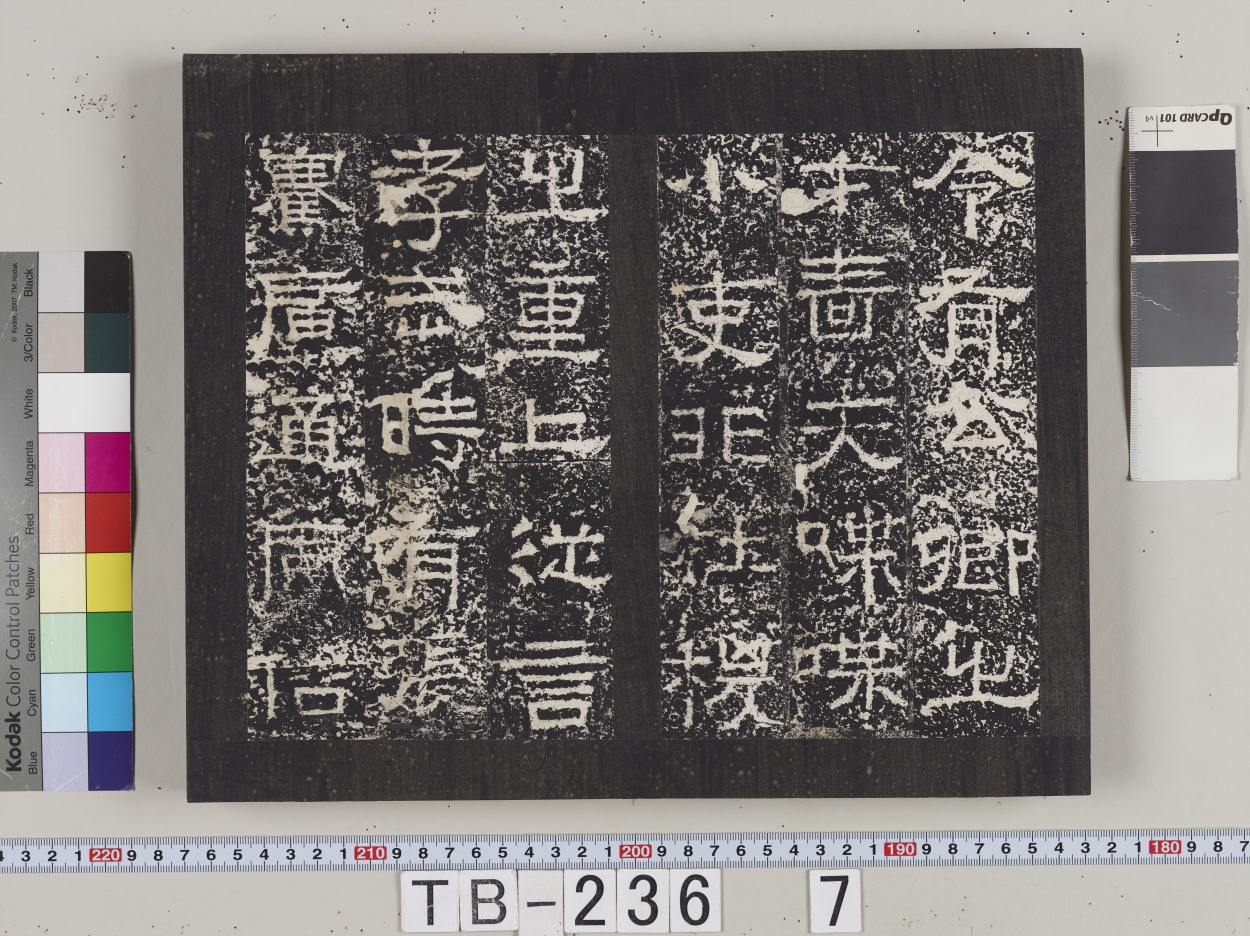 令有公卿之
才嗇夫喋喋
小吏非社稷
之重上從言
孝武時有張
騫廣通風俗
Kodak Color Control Patches
© Kodak, 2007 TM: Kodak
Blue Cyan Green Yellow Red Magenta White 3/Color Black
QPCARD 101 v4
4 3 2 1 220 9 8 7 6 5 4 3 2 1 210 9 8 7 6 5 4 3 2 1 200 9 8 7 6 5 4 3 2 1 190 9 8 7 6 5 4 3 2 1 180 9 8 7
TB-236 7